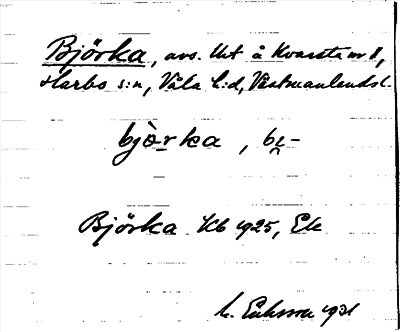 Björka, avs. Ut å Kvarsta nr 8,
Harbo s:n, Våla h:d, Västmanlands l.
björka, bi-
Björka Kb 1925, Ek
M. Eriksson 1931